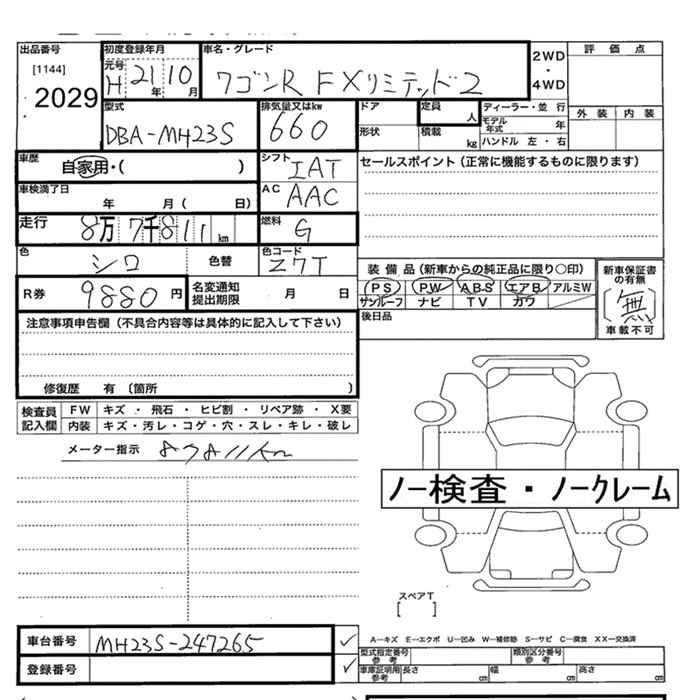 出品番号 初度登録年月 車名・グレード 2WD・4WD 評価点
[1144] 元号 H 21年 10月 ワゴンR FXリミテッド2
2029
型式 排気量又はkw ドア 定員 人 ディーラー・並 行 外装 内装
DBA-MH23S 660 形状 積載 kg モデル年式 年
ハンドル 左・右
車歴 自家用・( ) シフト IAT セールスポイント(正常に機能するものに限ります)
車検満了日 年 月( 日) AC AAC
走行 8万7千811km 燃料 G
色 シロ 色替 色コード Z7T
装備品(新車からの純正品に限り○印) 新車保証書の有無
R券 9880円 名変通知提出期限 月 日 PS PW ABS エアB アルミW (無)
サンルーフ ナビ TV カワ 車載不可
後日品
注意事項申告欄(不具合内容等は具体的に記入して下さい)
修復歴 有 〔箇所 〕
検査員記入欄 FW キズ・飛石・ヒビ割・リペア跡・X要
内装 キズ・汚レ・コゲ・穴・スレ・キレ・破レ
メーター指示 87811km
ノー検査・ノークレーム
スペアT
[ ]
車台番号 MH23S-247265 ✓
A―キズ E―エクボ U―凹み W―補修跡 S―サビ C―腐食 XX―交換済
型式指定番号 参考 類別区分番号 参考
登録番号 ✓ 車庫証明用 参考 長さ cm 幅 cm 高さ cm